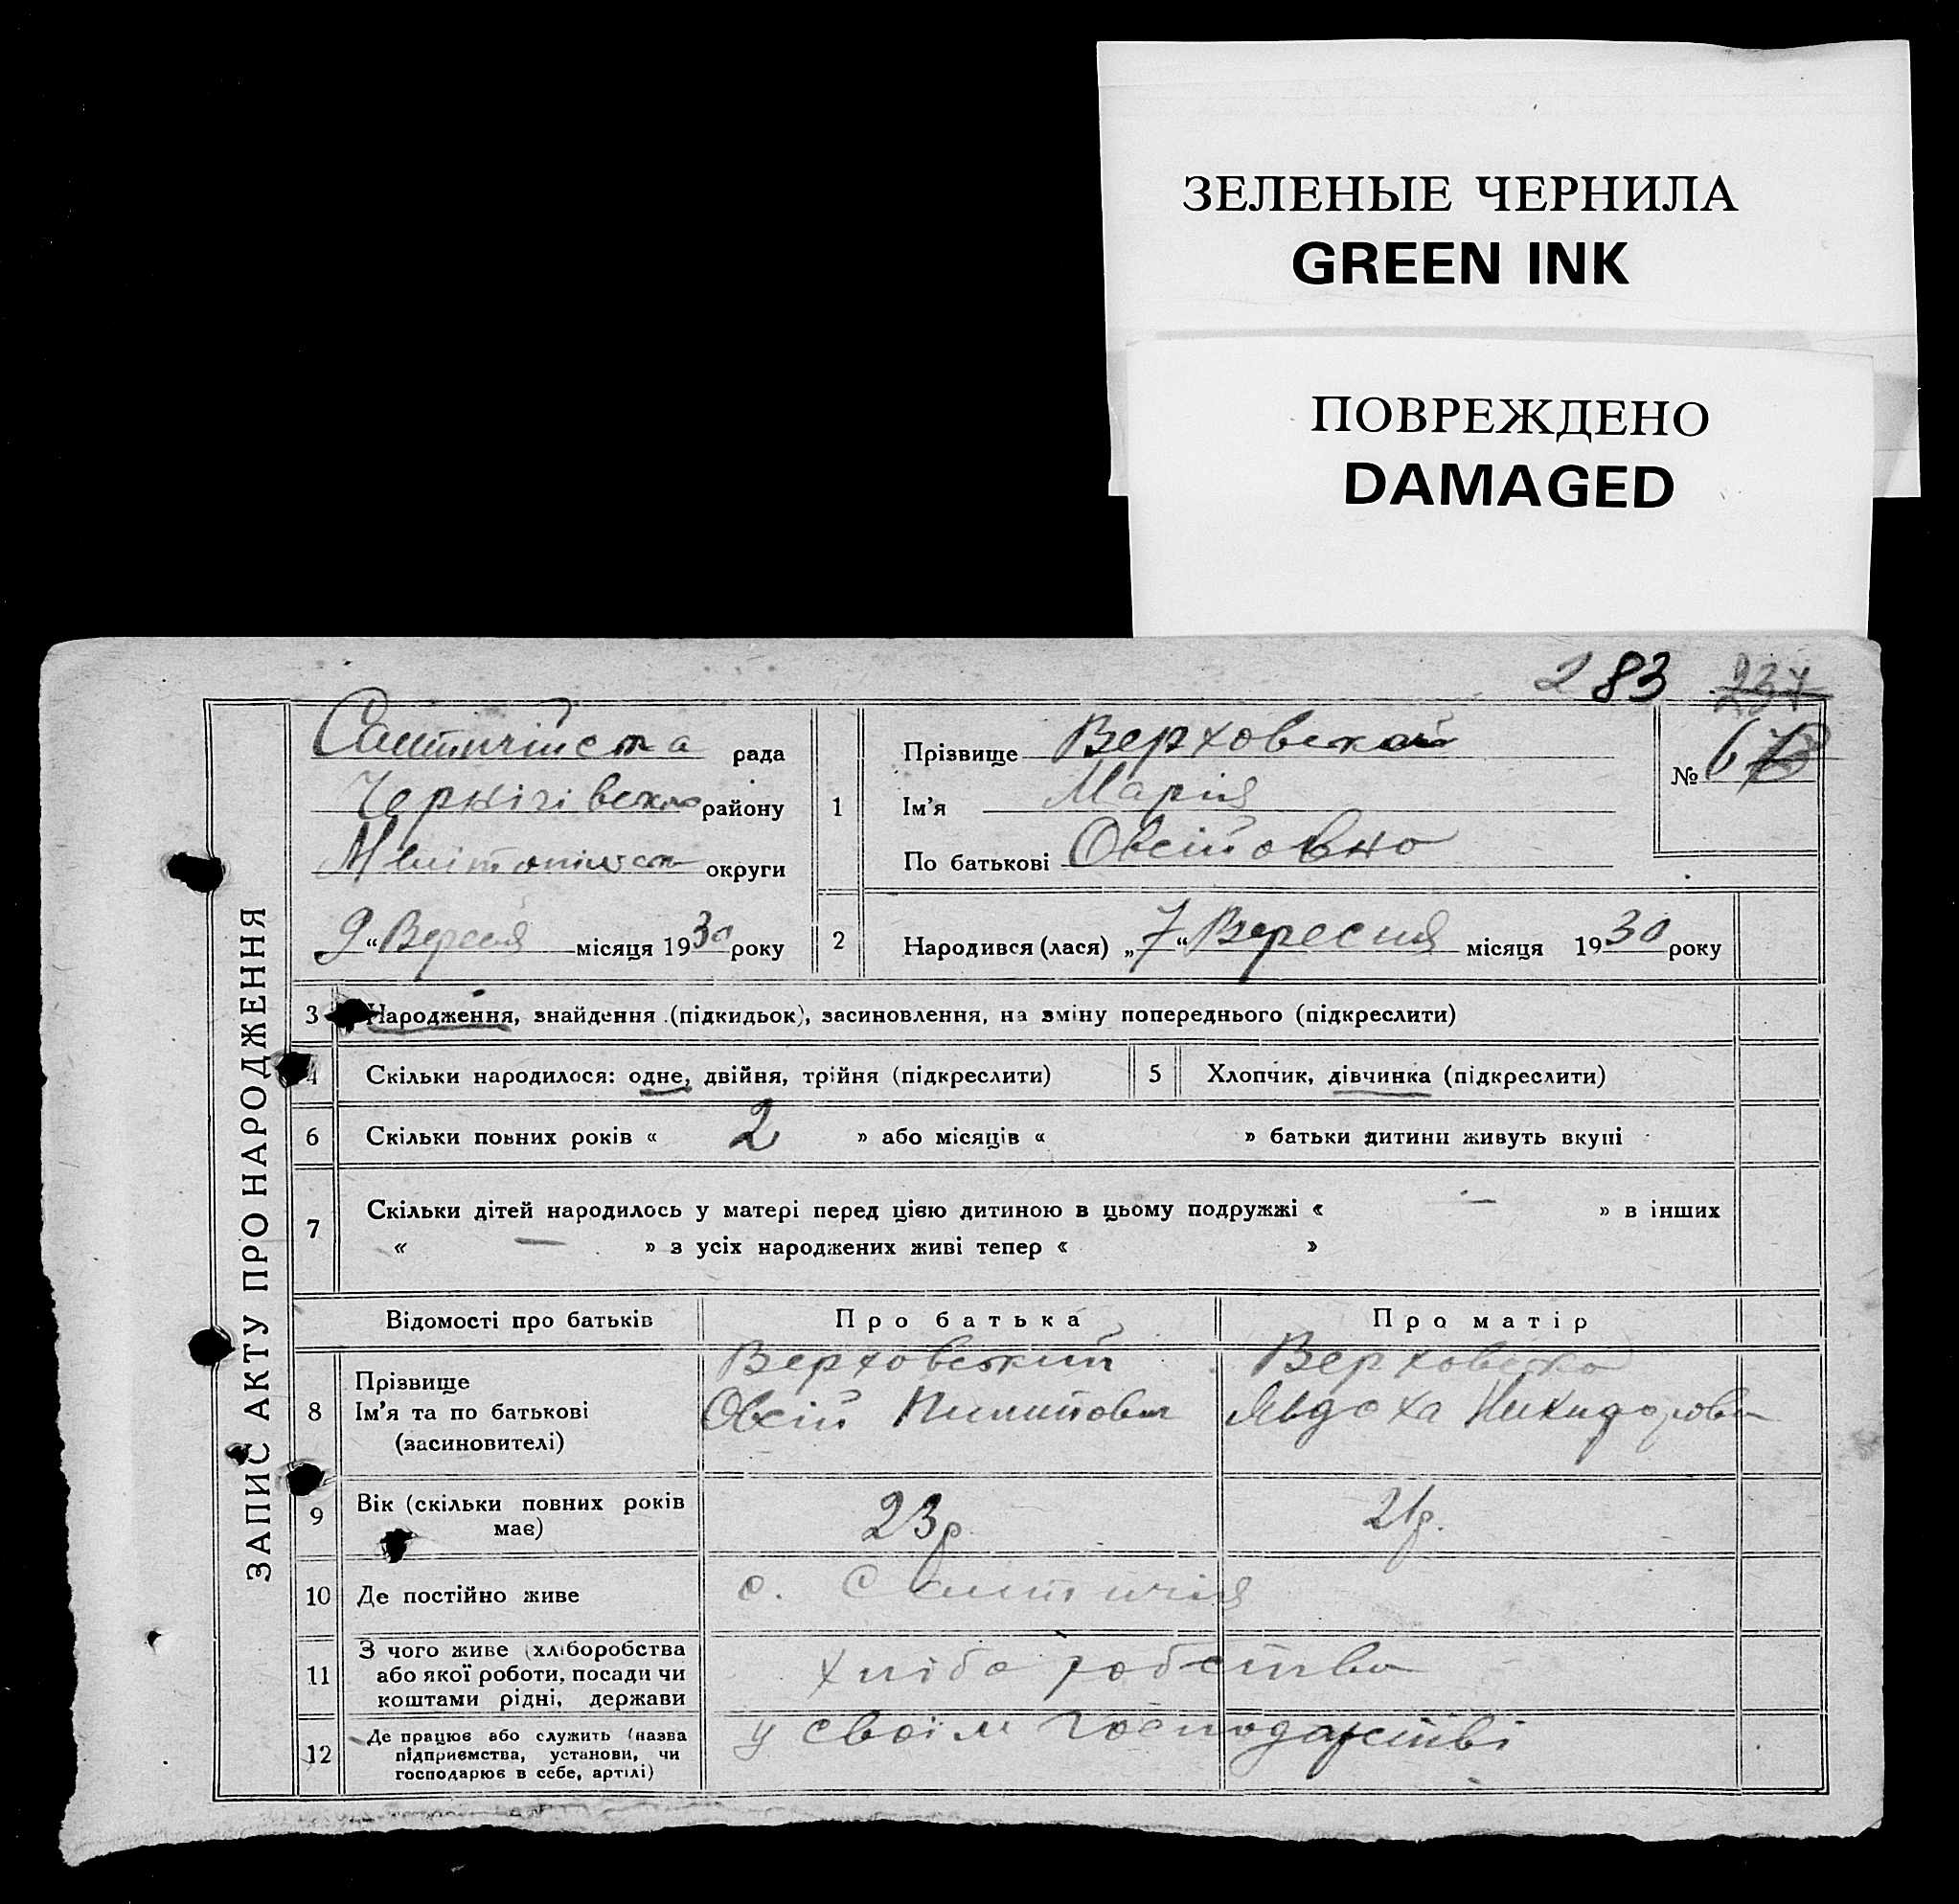 ЗЕЛЕНЫЕ ЧЕРНИЛА
GREEN INK
ПОВРЕЖДЕНО
DAMAGED
283 237
ЗАПИС АКТУ ПРО НАРОДЖЕННЯ
рада
Чернігівсько району
округи
„9“ Вересня місяця 1930 року
1
Прізвище Верховська
Ім'я Марія
По батькові Овсійовно
№ 67
2 Народився (лася) „7“ Вересня місяця 1930 року
3 Народження, знайдення (підкидьок), засиновлення, на зміну попереднього (підкреслити)
4 Скільки народилося: одне, двійня, трійня (підкреслити)
5 Хлопчик, дівчинка (підкреслити)
6 Скільки повних років « 2 » або місяців « » батьки дитини живуть вкупі
7 Скільки дітей народилось у матері перед цією дитиною в цьому подружжі « — » в інших
« — » з усіх народжених живі тепер « »
Відомості про батьків Про батька Про матір
8 Прізвище
Ім'я та по батькові
(засиновителі)
Верховский
Овсій Пилипович
Верховска
Явдоха Никидорови
9 Вік (скільки повних років
має)
23р 21р.
10 Де постійно живе с.
11 З чого живе (хліборобства
або якої роботи, посади чи
коштами рідні, держави
хліборобства
12 Де працює або служить (назва
підприємства, установи, чи
господарює в себе, артілі)
у своїм господарстві